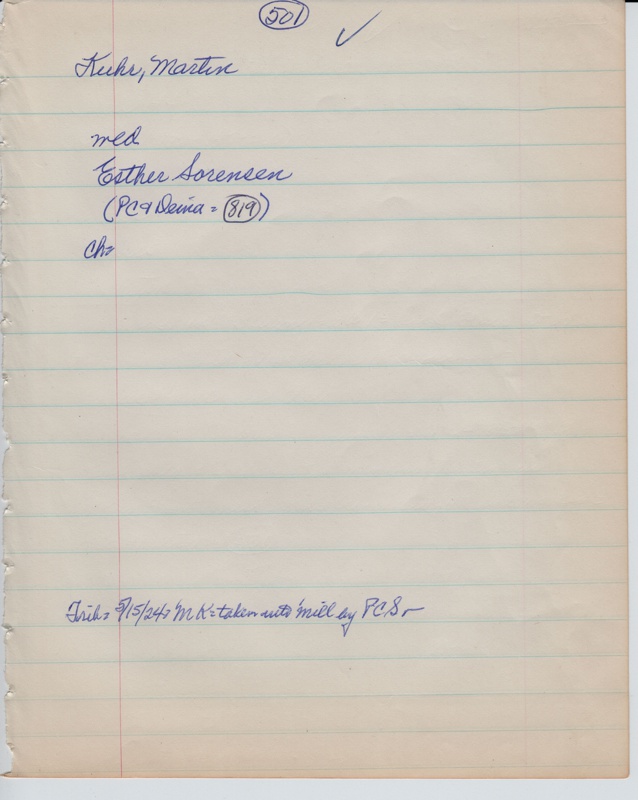 501 ✓
Kuhr, Martin
med
Esther Sorensen
(PC & Deina = 819)
Ch=
Trib= 5/15/24= M K= taken into mill by P.C.S.